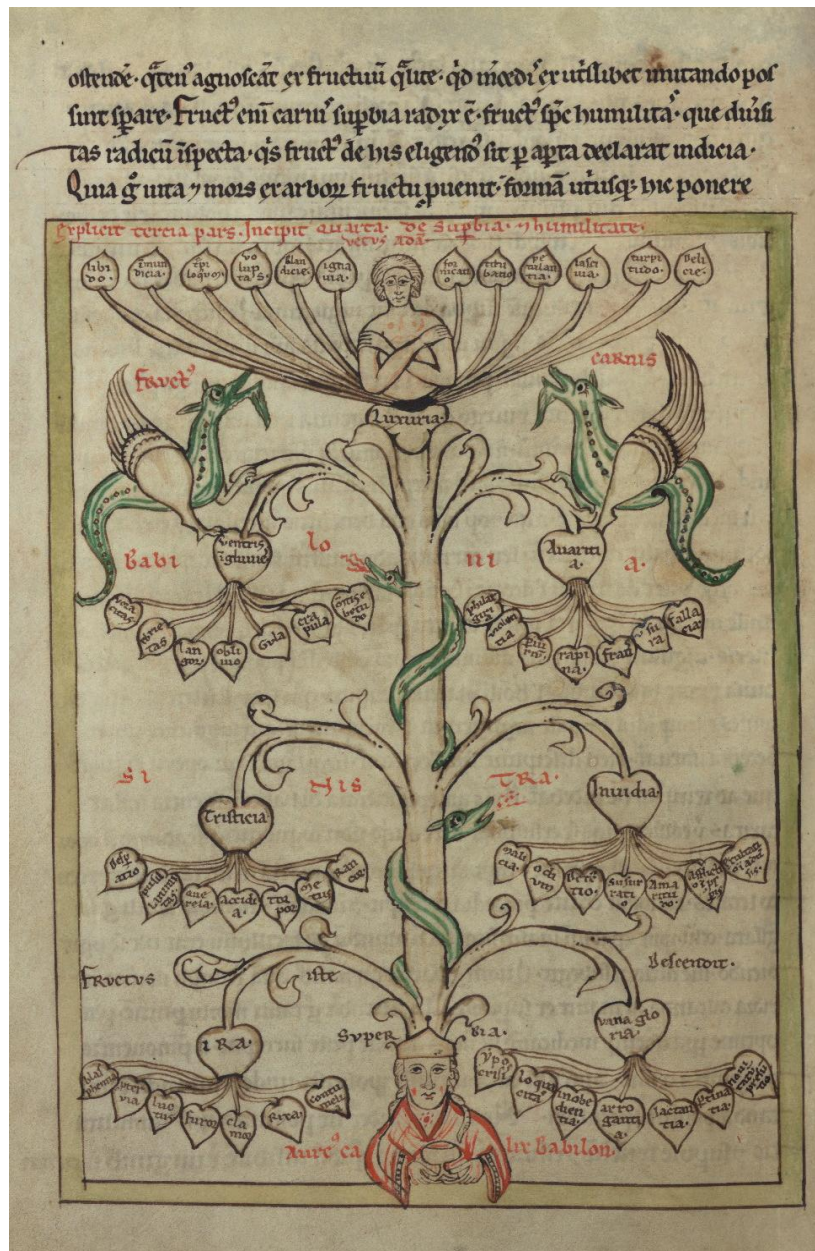 ostendē· q̄ten⁹ agnoscāt ex fructuū q̄lite· qd̄ īmcedi ex utͥslibet mutando pos
sunt spare· Fruct⁹ eni carniˢ suꝑbia radix ē· fruct⁹ sp̄c humilitaˢ· que diuˀsi
tas radicū īspecta· qͥs fruct⁹ de his eligend⁹ sit ꝑ aꝑta declarat indicia·
Quia g̊ uita ⁊ mors ex arborꝝ fructu ꝓuenit· formā utͥusqꝫ hic ponere
Explicit tercia pars. Incipit quarta de Suꝑbia ⁊ humilitate.
vetus adā
libi
do.
īmun
dicia.
tˀpi
loqͥoꝝ
vo
lup
tas.
blan
dicie.
igna
via.
for
nicatio
titu
batio
pe
tulan
tia.
lasci
via.
turpi
tudo.
Deli
cie.
Fruct⁹
carnis
Luxuria·
Babi
lo
ni
a.
ventris
īgluvie
Avariti
a.
ebrie
tas
lan
gor.
obli
vio
Gula
cra
pula
philar
giria
violen
tia
ꝑiuriū
rapi
na.
frauˢ
usu
ra
falla
cia.
si
nis
TRA.
Tristicia
Invidia
Despˀ
atio
pusill
animi
tas
que
rela.
accidi
a.
Tor
por
me
tus
Ran
cor.
mali
cia.
odi
um
Detͣc
tio.
susur
ratio
Ama
ritu
Fructus
iste
Descendit.
IRA.
vana glo
ria.
super
bia.
blas
phemia
pˀter
via
luc
tus
furor
cla
mor
Rixa.
contu
meli
ypo
crisi
loqua
citaˢ
inobe
dien
tia.
arro
ganti
a
Iactan
tia.
ꝑtina
tia.
noui
tatū
ꝓsūtio
Aure⁹ ca
lix Babilon·